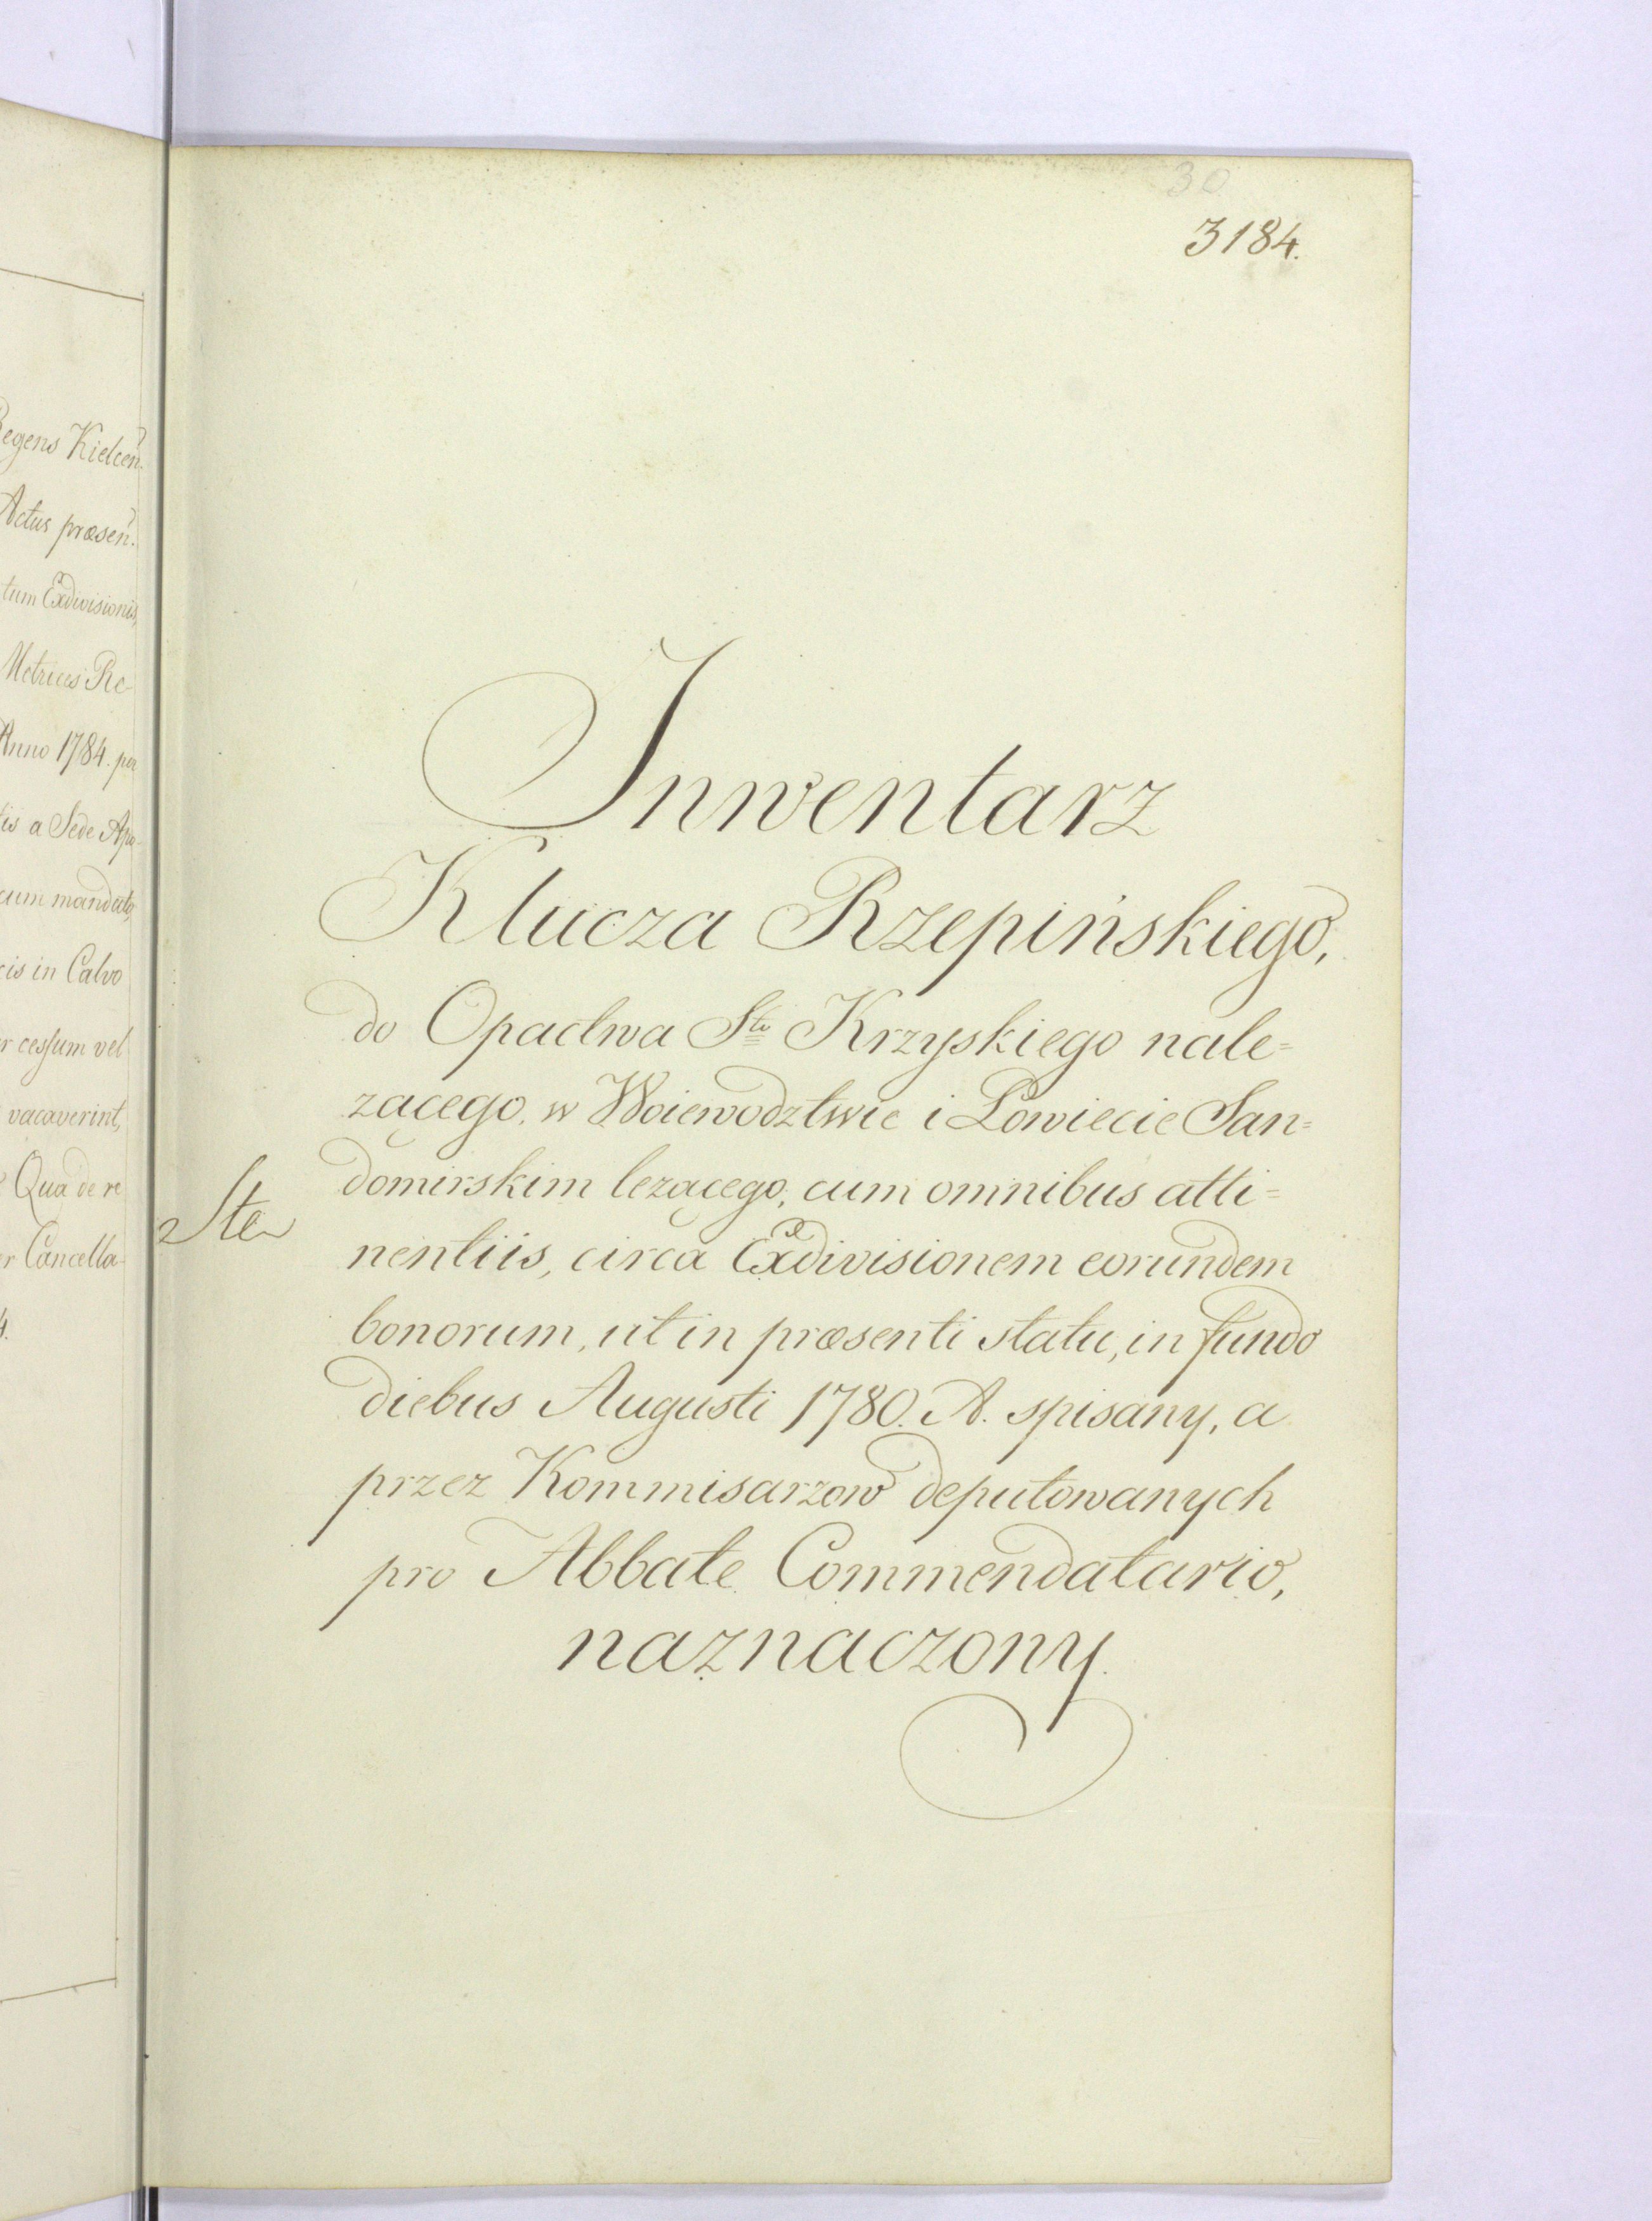 egens Kielcen.
Actus præsen.
tum Exdivisionis,
Metrices Re-
Anno 1784. per
tis a Sede Apo-
cum mandato,
cis in Calvo
r cessum vel
vacaverint,
Qua de re
er Cancella-
4.
30
3184.
Inwentarz
Klucza Rzepińskiego,
do Opactwa Sto Krzyskiego nale=
zącego, w Woiewodztwie i Powiecie San=
domirskim lezącego, cum omnibus atti=
nentiis, circa Exdivisionem eorundem
bonorum, ut in præsenti statu, in fundo
diebus Augusti 1780. A. spisany, a
przez Kommisarzow deputowanych
pro Abbate Commendatario,
naznaczony.